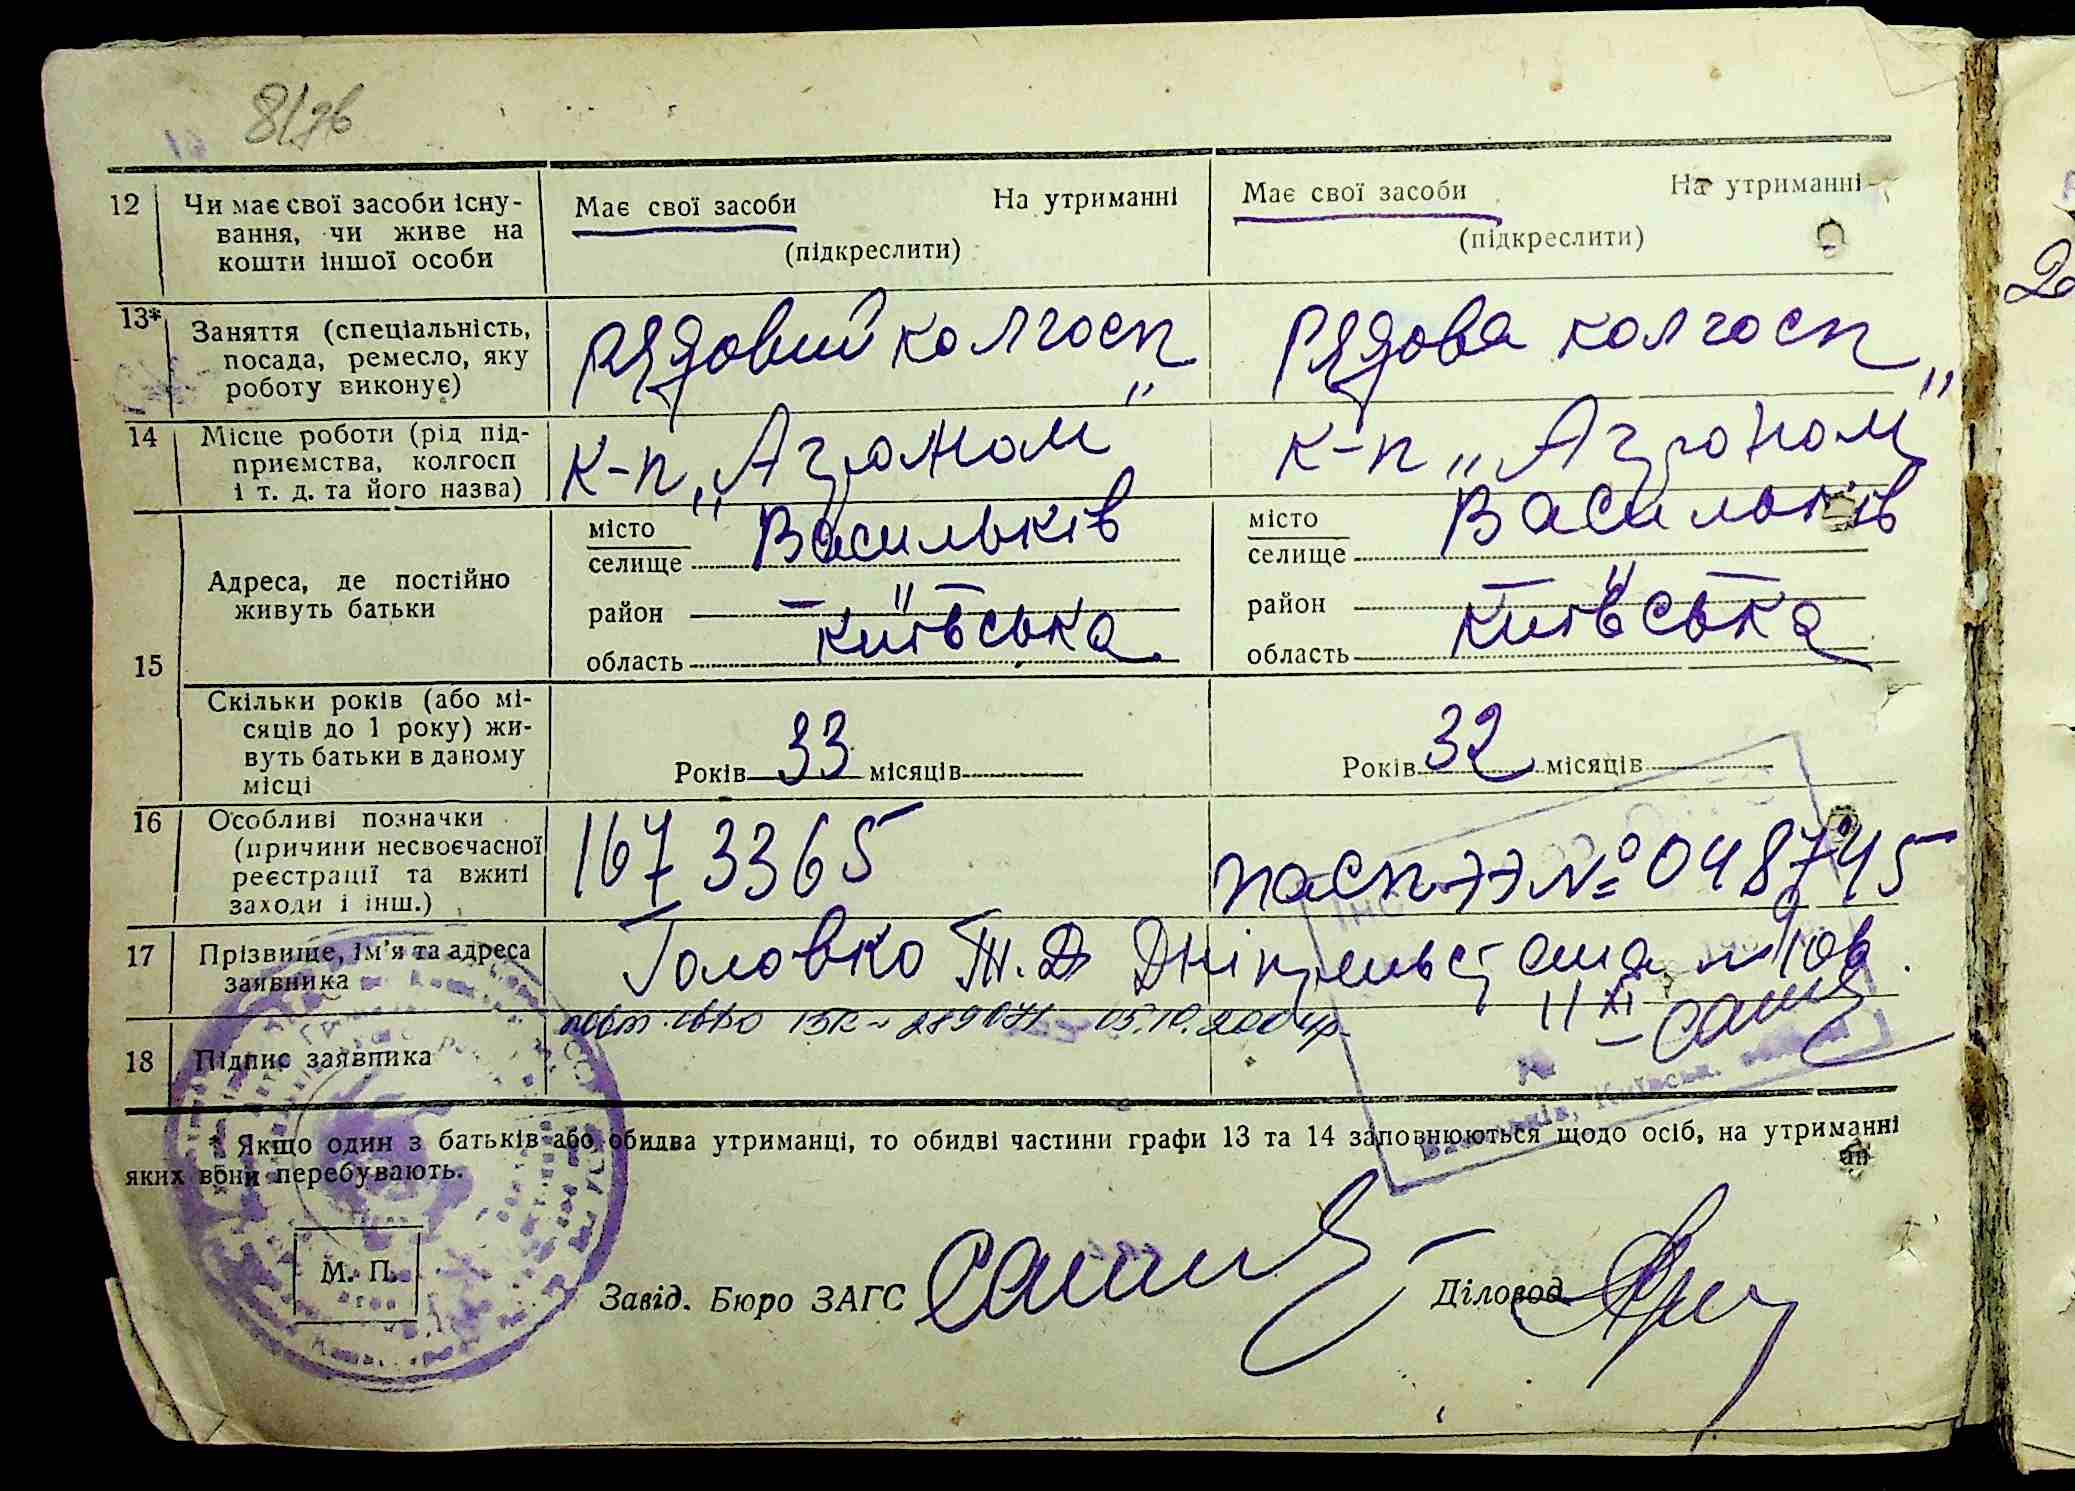 12 Чи має свої засоби існу-
вання, чи живе на
кошти іншої особи
Має свої засоби На утриманні
(підкреслити)
Має свої засоби На утриманні
(підкреслити)
13* Заняття (спеціальність,
посада, ремесло, яку
роботу виконує)
Рядовий колгосп
Рядова колгосп
14 Місце роботи (рід під-
приємства, колгосп
і т. д. та його назва)
к-п „Агроном"
к-п „Агроном"
15 Адреса, де постійно
живуть батьки
місто
селище Васильків
район — " —
область Київська
місто
селище Васильків
район — " —
область Київська
Скільки років (або мі-
сяців до 1 року) жи-
вуть батьки в даному
місці
Років 33 місяців
Років 32 місяців
16 Особливі позначки
(причини несвоєчасної
реєстрації та вжиті
заходи і інш.)
167 3365
пасп ЭЭ № 048745
17 Прізвище, ім'я та адреса
заявника
Головко Т. Д.
18 Підпис заявника
05.10.2004р.
* Якщо один з батьків або обидва утриманці, то обидві частини графи 13 та 14 заповнюються щодо осіб, на утриманні
яких вони перебувають.
М. П.
Завід. Бюро ЗАГС
Діловод